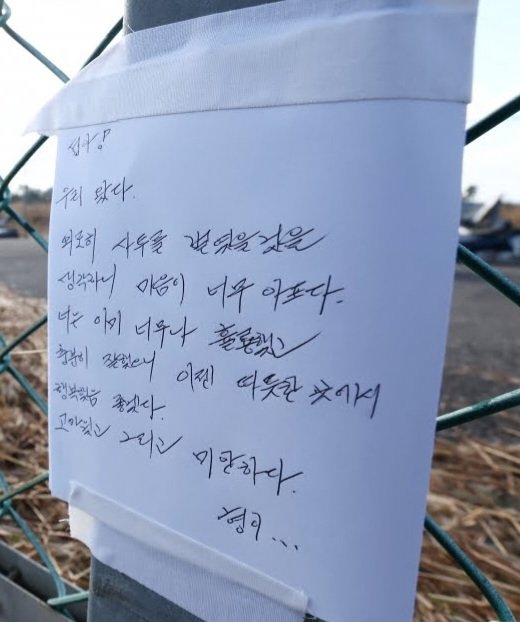 섭아!
우리 왔다.
외로히 사투를 벌였을것을
생각하니 마음이 너무 아프다.
너는 이미 너무나 훌륭했고
충분히 잘했으니 이젠 따듯한 곳에서
행복했음 좋겠다.
고마웠고 그리고 미안하다.
형이...